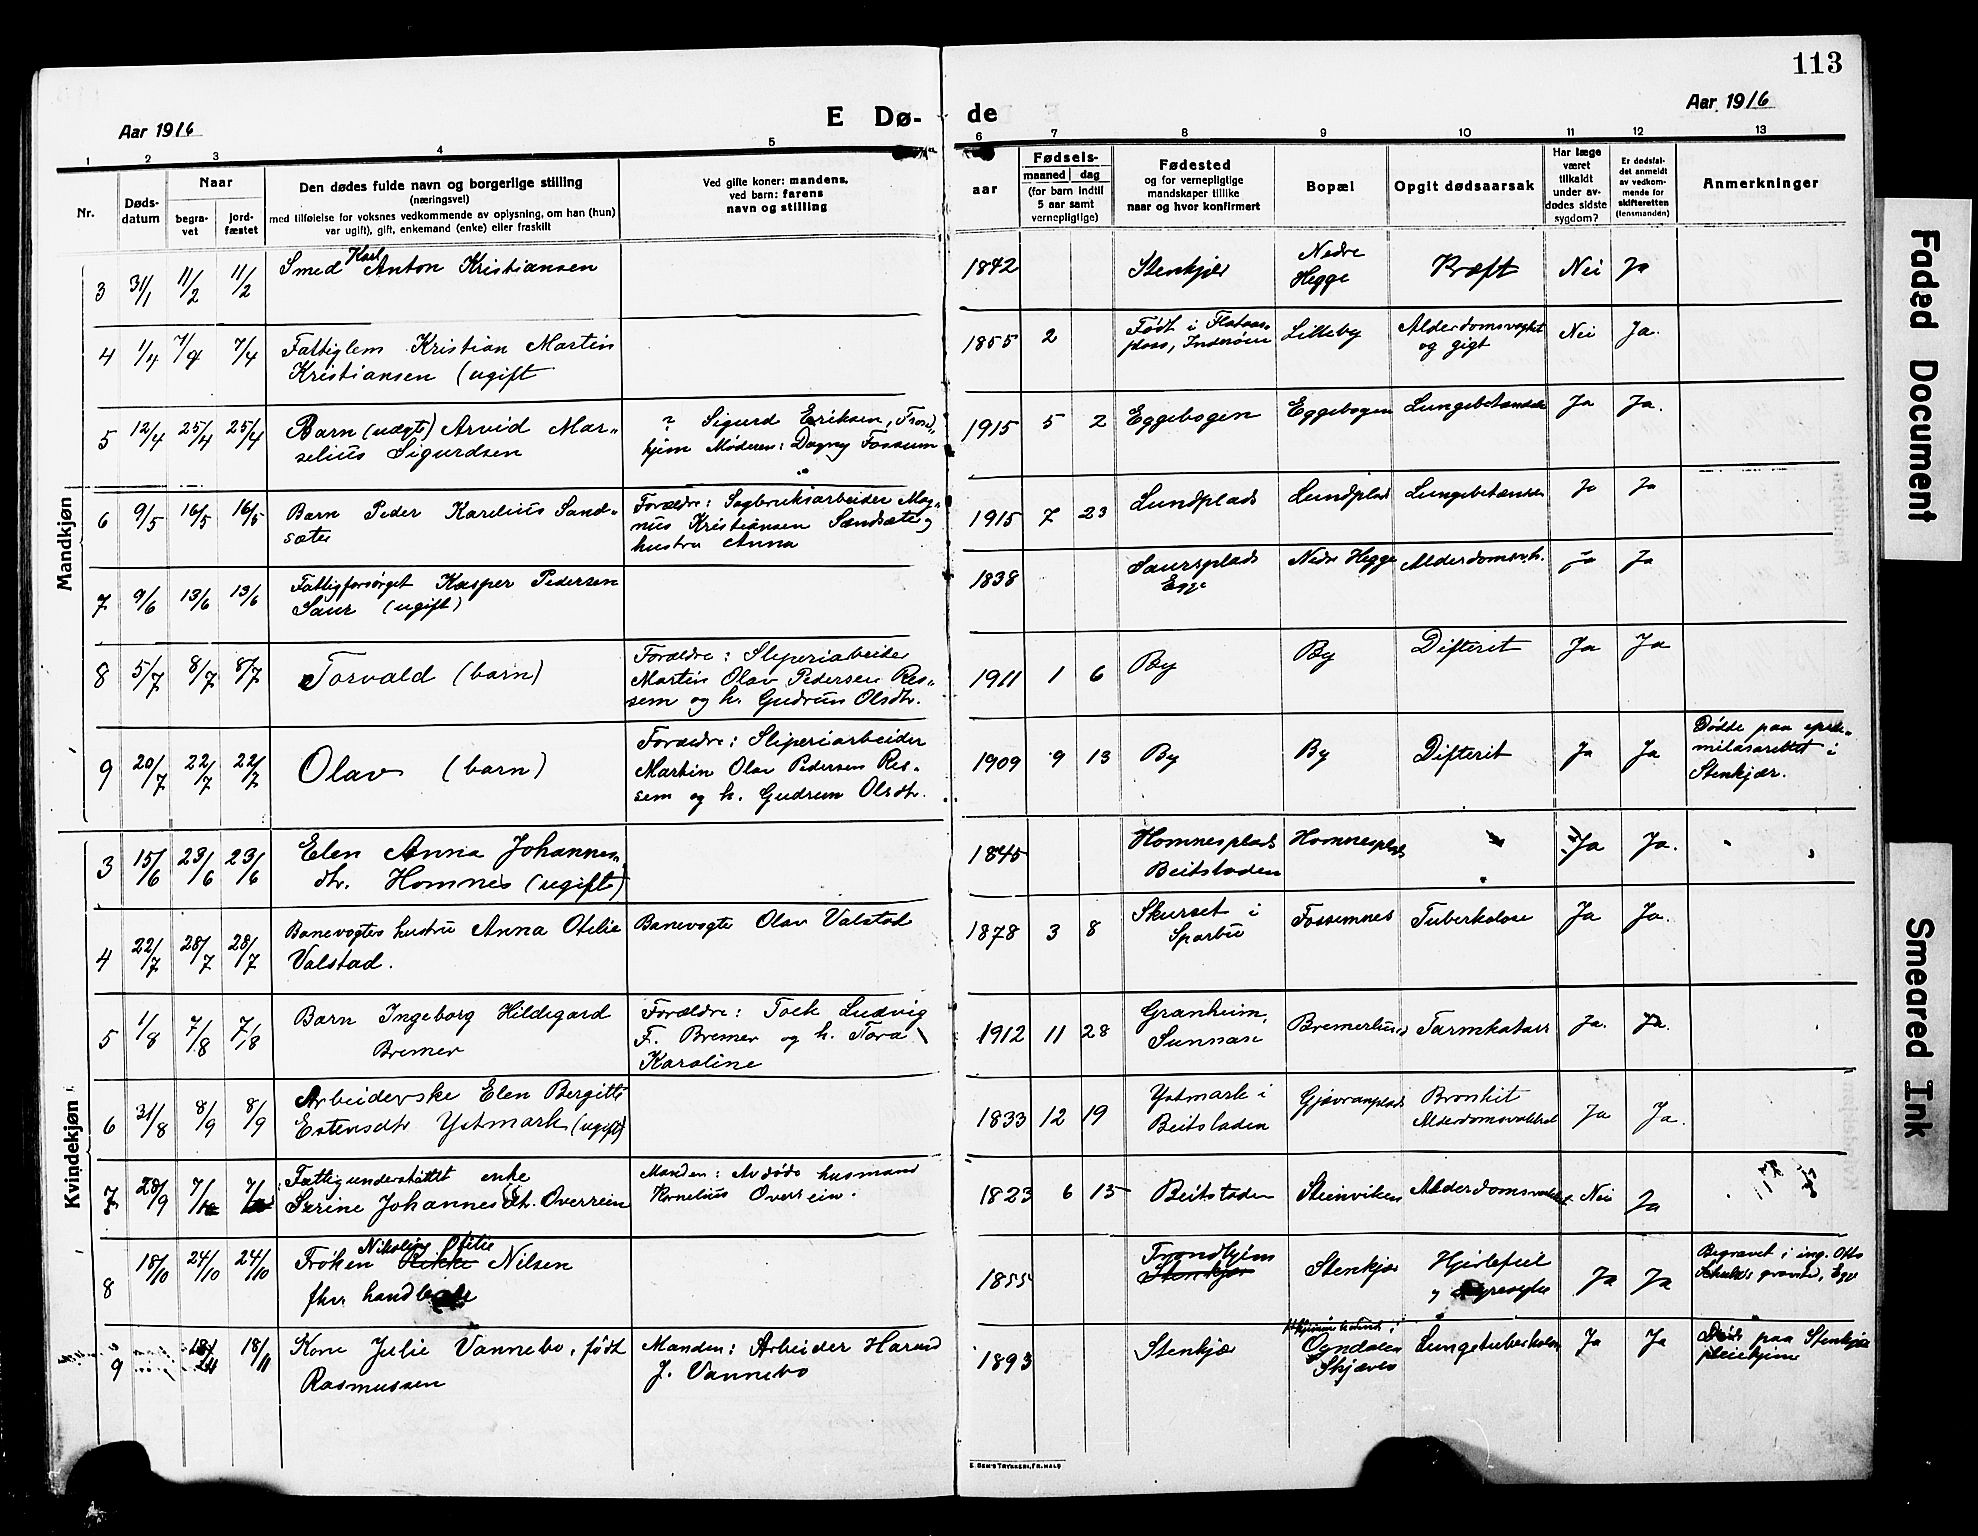 113
Aar 1916
E Dø-
de
Aar 1916
1 2 3 4 5 6 7 8 9 10 11 12 13
Nr.
Døds-
datum
Naar
begra-
vet
jord-
fæstet
Den dødes fulde navn og borgerlige stilling
(næringsvei)
med tilføielse for voksnes vedkommende av oplysning, om han (hun)
var ugift), gift, enkemand (enke) eller fraskilt
Ved gifte koner: mandens,
ved barn: farens
navn og stilling
Fødsels-
aar
maaned dag
(for barn indtil
5 aar samt
vernepligtige)
Fødested
og for vernepligtige
mandskaper tillike
naar og hvor konfirmert
Bopæl
Opgit dødsaarsak
Har læge
været
tilkaldt
under av-
dødes sidste
sygdom?
Er dødsfal-
det anmeldt
av vedkom-
mende for
skifteretten
(lensmanden)
Anmerkninger
Mandkjøn
3 31/1 11/2 11/2 Smed Karl Anton Kristiansen 1842 Stenkjær Nedre
Hegge Kræft Nei Ja
4 1/4 7/4 7/4 Fattiglem Kristian Martin
Kristiansen (ugift
1855 2 Født i
plads, Inderøen Lilleby Alderdomsvakhet
og gigt Nei Ja.
5 12/4 25/4 25/4 Barn (uægte) Arvid Mar-
selius Sigurdsen
? Sigurd Eriksen, Trond-
hjem Moderen: Dagny Fossum
1915 5 2 Eggebogen Eggebogen Lungebetændelse Ja Ja.
6 9/5 16/5 16/5 Barn Peder Karelius Sand-
sæter
Forældre: Sagbruksarbeider Mag-
nus Kristiansen Sandsæter og
hustru Anna
1915 7 23 Lundplads Lundplads Lungebetændelse Ja Ja
7 9/6 13/6 13/6 Fattigforsørget Kasper Pedersen
Saur (ugift)
1838 Saursplads
Egge Nedre Hegge Alderdomsvh. Ja Ja
8 5/7 8/7 8/7 Torvald (barn)
Forældre: Sliperiarbeider
Martin Olav Pedersen Res-
sem og h. Gudrun Olsdtr.
1911 1 6 By By Difterit Ja Ja
9 20/7 22/7 22/7 Olav (barn)
Forældre: Sliperiarbeider
Martin Olav Pedersen Res-
sem og h. Gudrun Olsdtr.
1909 9 13 By By Difterit Ja Ja
Dødde paa epide-
milasarettet i
Stenkjær.
Kvindekjøn
3 15/6 23/6 23/6 Elen Anna Johannes-
dtr. Homnes (ugift)
1845 Homnesplads
Beitstaden Homnesplads Ja Ja.
4 22/7 28/7 28/7 Banevogters hustru Anna Otelie
Valstad.
Banevogter Olav Valstad
1878 3 8 Skurset i
Sparbu Fossemnes Tuberkulose Ja Ja.
5 1/8 7/8 7/8 Barn Ingeborg Hildegard
Bremer
Forældre: Ludvig
F. Bremer og h. Tora
Karoline
1912 11 28 Granheim,
Sunnan Tarmkatarr Ja. Ja.
6 31/8 8/9 8/9 Arbeiderske Elen Bergitte
Estensdtr Ystmark (ugift)
1833 12 19 Ystmark i
Beitstaden Gjævranplads Bronkit
Alderdomsvakhet Ja Ja.
7 28/9 7/10 7/10 Fattigunderstøttet enke
Serine Johannesdtr. Overrein
Manden: Avdøde husmand
Kornelius Overrein.
1823 6 15 Beitstaden Steinviken Alderdomsvakhet Nei Ja
8 18/10 24/10 24/10 Nikoline Otelie
Frøken Rikke Nilsen
fhv.
1855 Trondhjem
Stenkjær Stenkjær Hjertefeil
Ja Ja
Begravet i ing. Otto
gravsted, Egge
9 18/11 18/11 Kone Julie Vannebo, født
Rasmussen
Manden: Arbeider Harald
J. Vannebo
1893 Stenkjær
Ogndalen
Skjævlo Lungetuberkulose Ja Ja
Døde paa Stenkjær
pleiehjem
E. SEM'S TRYKKERI, FR.HALD
Faded Document
Smeared Ink